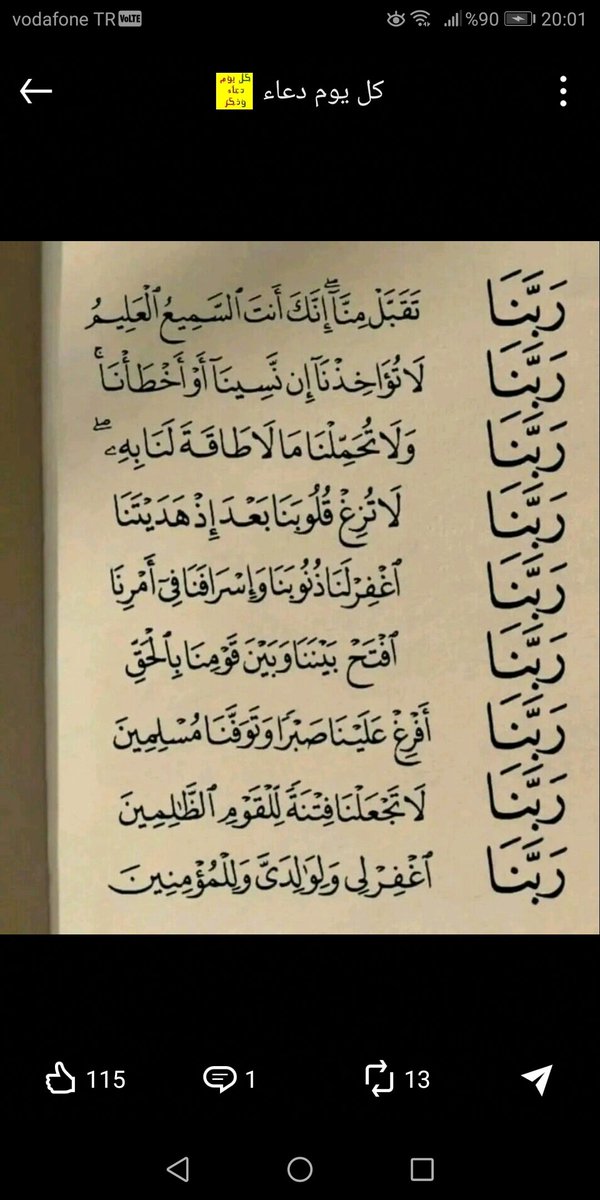 vodafone TR VoLTE %90 20:01
كل يوم دعاء
كل يوم
دعاء
وذكر
رَبَّنَا تَقَبَّلْ مِنَّآۖ إِنَّكَ أَنتَ ٱلسَّمِيعُ ٱلْعَلِيمُ
رَبَّنَا لَا تُؤَاخِذْنَآ إِن نَّسِينَآ أَوْ أَخْطَأْنَاۚ
رَبَّنَا وَلَا تُحَمِّلْنَا مَا لَا طَاقَةَ لَنَا بِهِۦۖ
رَبَّنَا لَا تُزِغْ قُلُوبَنَا بَعْدَ إِذْ هَدَيْتَنَا
رَبَّنَا ٱغْفِرْ لَنَا ذُنُوبَنَا وَإِسْرَافَنَا فِىٓ أَمْرِنَا
رَبَّنَا ٱفْتَحْ بَيْنَنَا وَبَيْنَ قَوْمِنَا بِٱلْحَقِّ
رَبَّنَا أَفْرِغْ عَلَيْنَا صَبْرًا وَتَوَفَّنَا مُسْلِمِينَ
رَبَّنَا لَا تَجْعَلْنَا فِتْنَةً لِّلْقَوْمِ ٱلظَّٰلِمِينَ
رَبَّنَا ٱغْفِرْ لِى وَلِوَٰلِدَىَّ وَلِلْمُؤْمِنِينَ
115 1 13